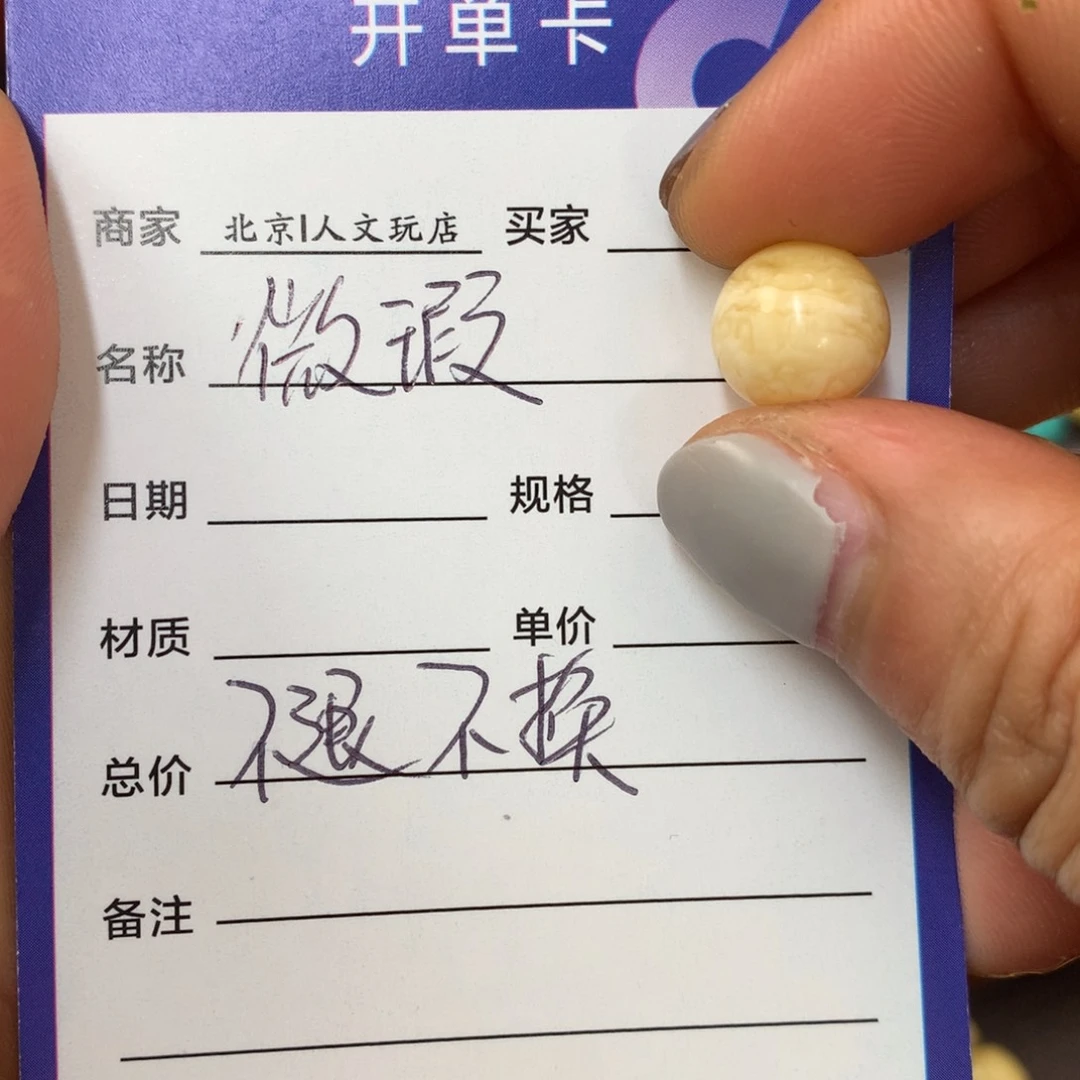 开单卡
商家 北京I人文玩店 买家
名称 微瑕
日期 规格
材质 单价
总价 不退不换
备注